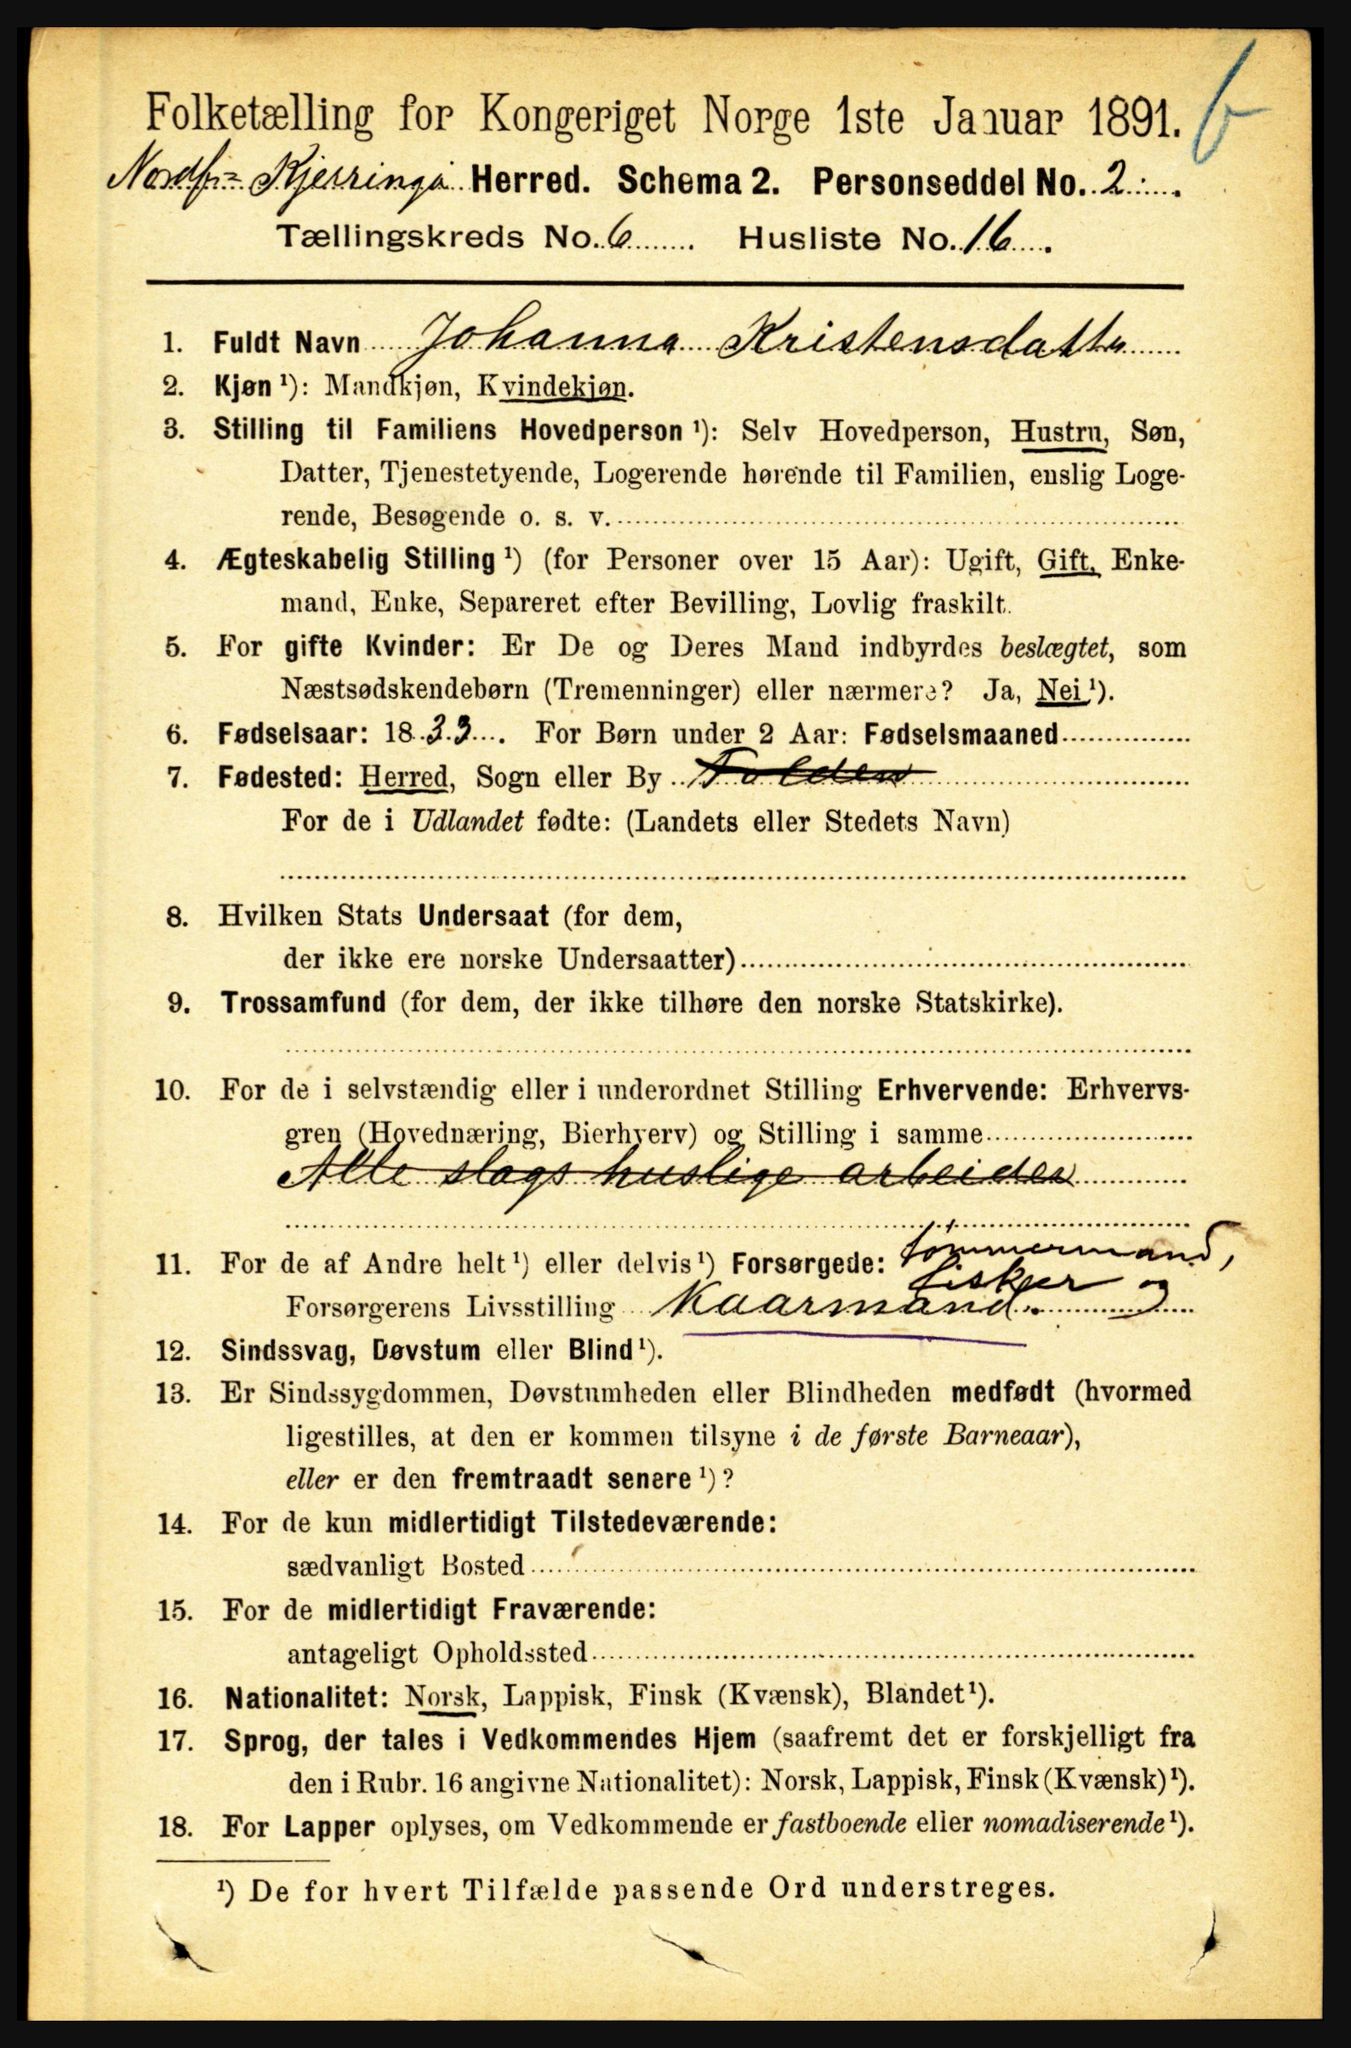 6
Folketælling for Kongeriget Norge 1ste Januar 1891.
Nordf:- Kjerringø Herred. Schema 2. Personseddel No. 2.
Tællingskreds No. 6. Husliste No. 16.
1. Fuldt Navn Johanna Kristensdatter
2. Kjøn ¹): Mandkjøn, Kvindekjøn.
3. Stilling til Familiens Hovedperson ¹): Selv Hovedperson, Hustru, Søn,
Datter, Tjenestetyende, Logerende hørende til Familien, enslig Loge-
rende, Besøgende o. s. v.
4. Ægteskabelig Stilling ¹) (for Personer over 15 Aar): Ugift, Gift, Enke-
mand, Enke, Separeret efter Bevilling, Lovlig fraskilt.
5. For gifte Kvinder: Er De og Deres Mand indbyrdes beslægtet, som
Næstsødskendebørn (Tremenninger) eller nærmere? Ja, Nei ¹).
6. Fødselsaar: 1833. For Børn under 2 Aar: Fødselsmaaned
7. Fødested: Herred, Sogn eller By Folden
For de i Udlandet fødte: (Landets eller Stedets Navn)
8. Hvilken Stats Undersaat (for dem,
der ikke ere norske Undersaatter)
9. Trossamfund (for dem, der ikke tilhøre den norske Statskirke).
10. For de i selvstændig eller i underordnet Stilling Erhvervende: Erhvervs-
gren (Hovednæring, Bierhverv) og Stilling i samme
Alle slags huslige arbeider
11. For de af Andre helt ¹) eller delvis ¹) Forsørgede: tømmermand,
fisker og
Forsørgerens Livsstilling Kaarmand.
12. Sindssvag, Døvstum eller Blind ¹).
13. Er Sindssygdommen, Døvstumheden eller Blindheden medfødt (hvormed
ligestilles, at den er kommen tilsyne i de første Barneaar),
eller er den fremtraadt senere ¹)?
14. For de kun midlertidigt Tilstedeværende:
sædvanligt Bosted
15. For de midlertidigt Fraværende:
antageligt Opholdssted
16. Nationalitet: Norsk, Lappisk, Finsk (Kvænsk), Blandet ¹).
17. Sprog, der tales i Vedkommendes Hjem (saafremt det er forskjelligt fra
den i Rubr. 16 angivne Nationalitet): Norsk, Lappisk, Finsk (Kvænsk) ¹).
18. For Lapper oplyses, om Vedkommende er fastboende eller nomadiserende ¹).
¹) De for hvert Tilfælde passende Ord understreges.